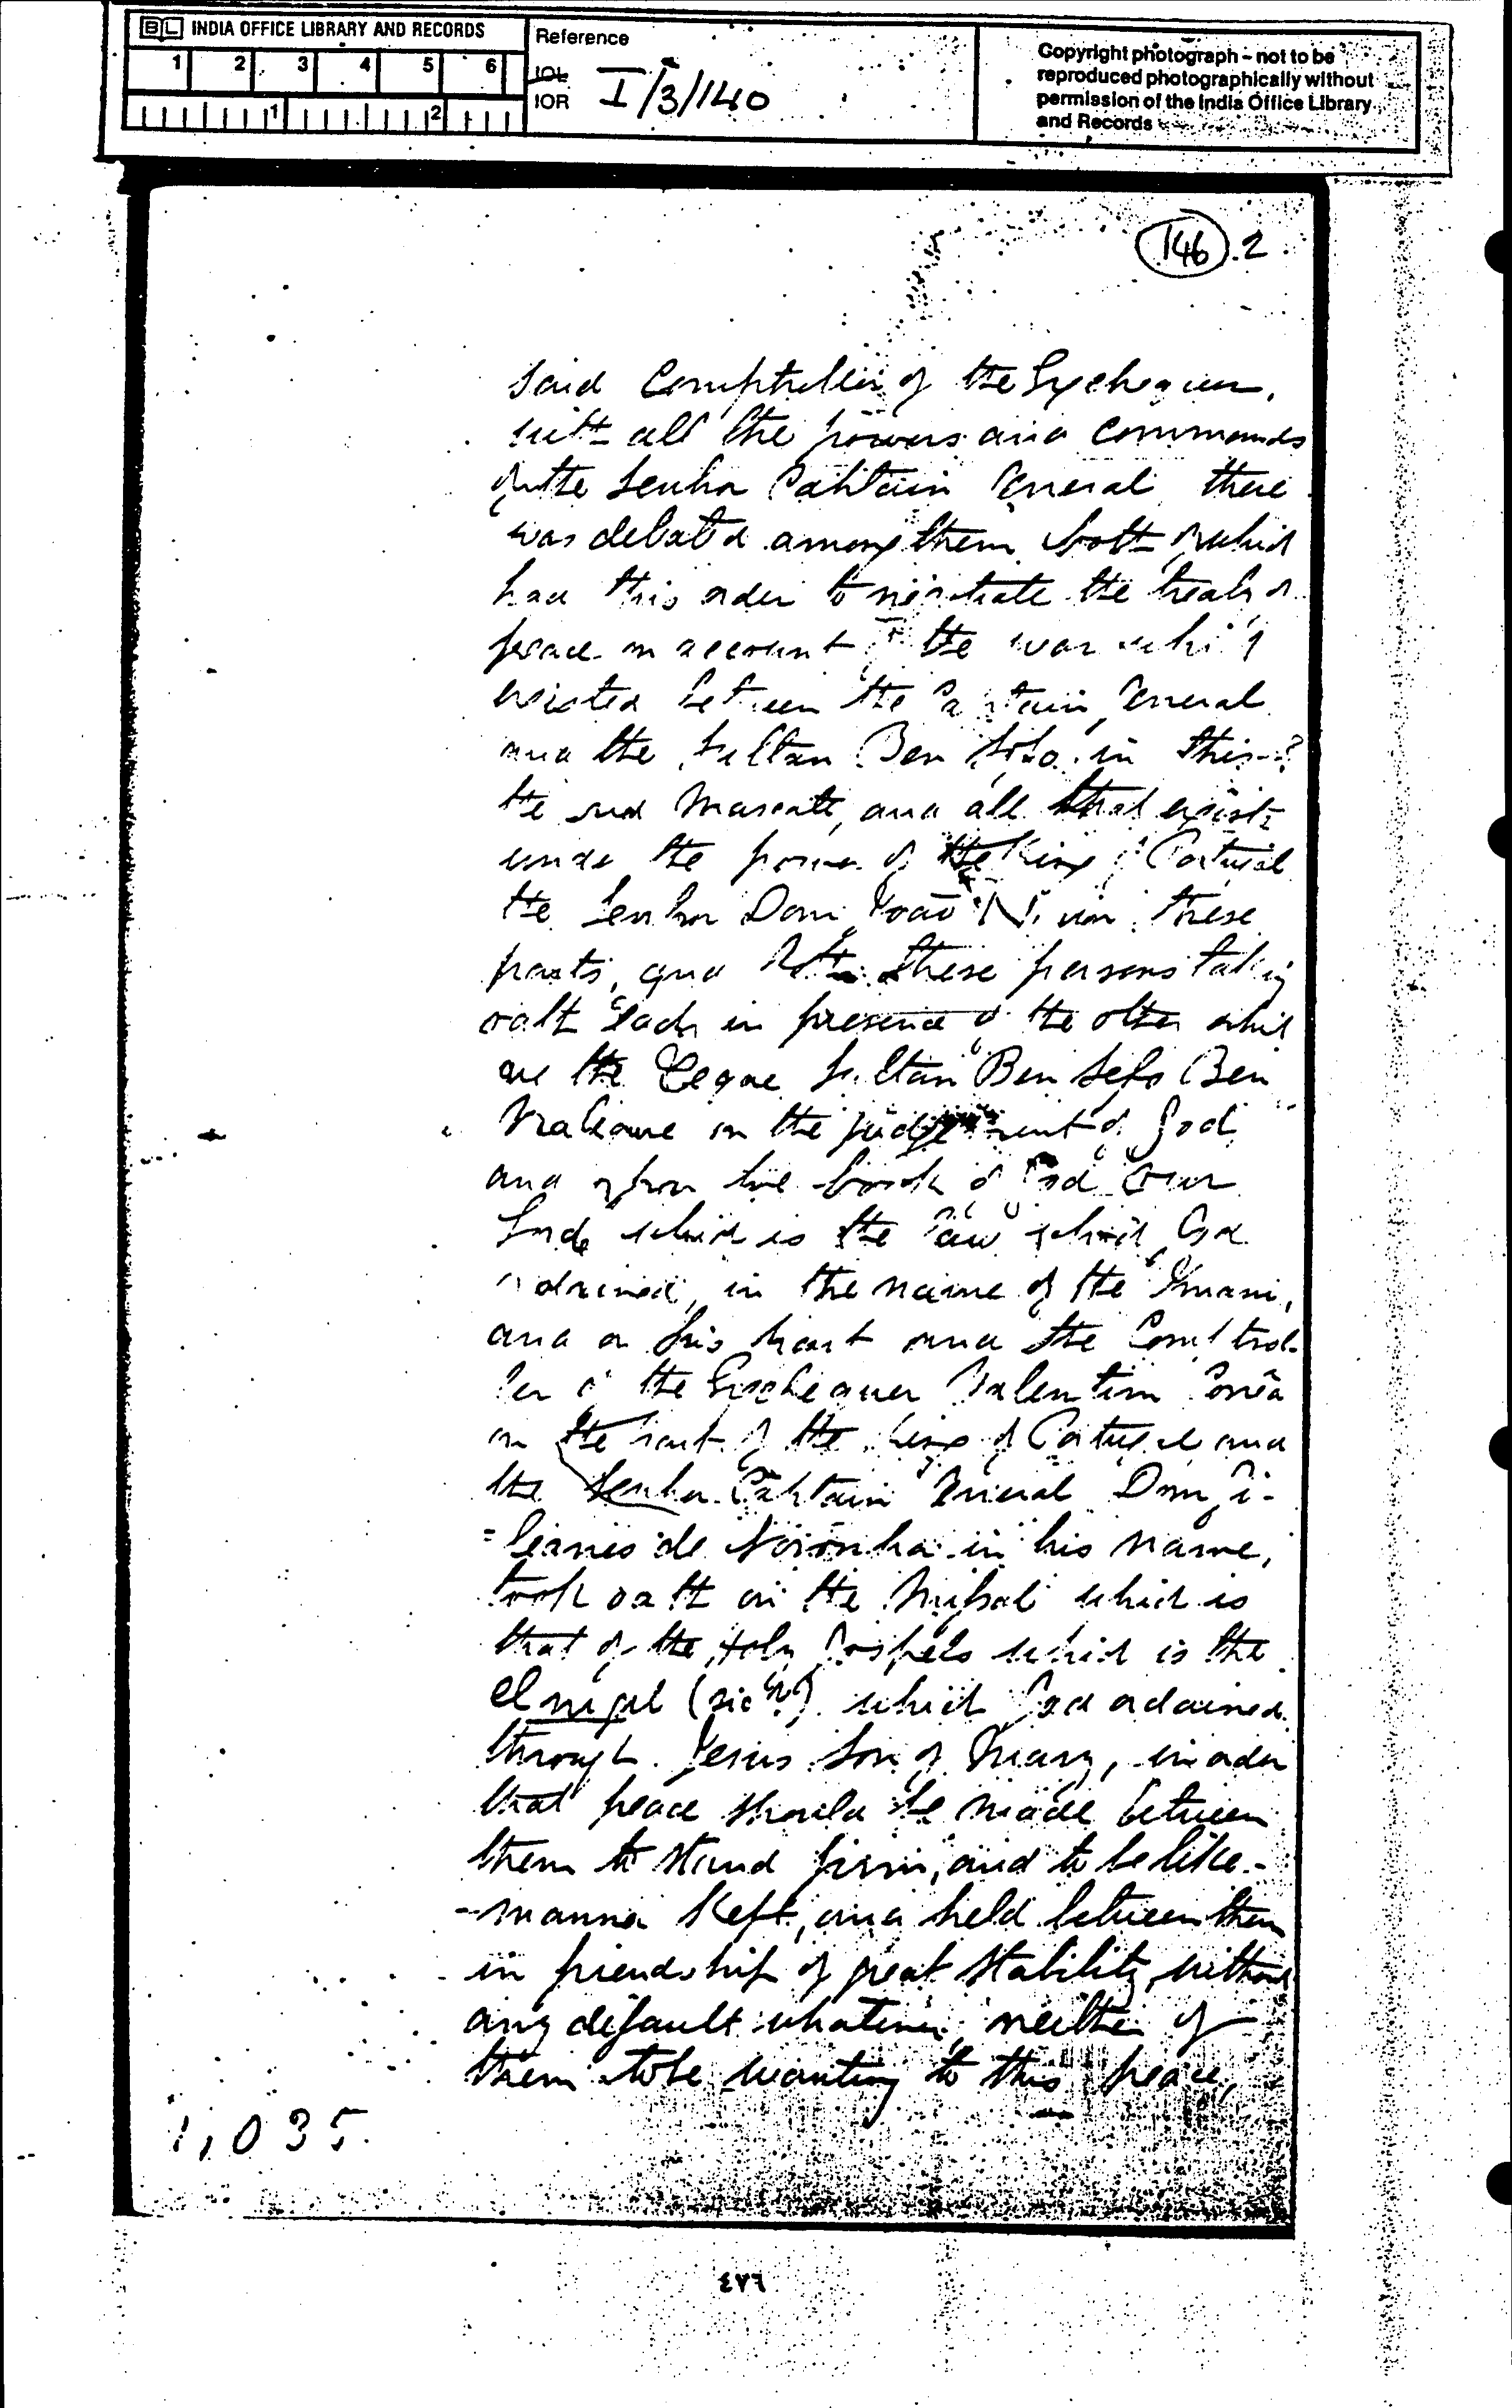 BL INDIA OFFICE LIBRARY AND RECORDS
1 2 3 4 5 6
1 2
Reference
IOL
IOR I/3/140
Copyright photograph - not to be
reproduced photographically without
permission of the India Office Library
and Records
146 . 2
said Comptroller of the Exchequer,
with all the powers and commands
of the Senhor Captain General there
was debated among them both which
had this order to negotiate the treaty of
peace on account of the war which
existed between the Captain General
and the Sultan Ben Sefo in this
the and Mascate, and all that exists
under the power of the King of Portugal
the Senhor Dom João in these
parts, and these persons taking
oath each in presence of the other which
the Ceque Sultan Ben Sefo Ben
in the judgement of God
and upon the book of God our
Lord which is the law which God
ordained, in the name of the Imam,
and on his part and the Comptrol-
ler of the Exchequer Valentim Corrêa
on the part of the King of Portugal and
the Senhor Captain General Dom Ju-
=lianes de Noronha in his name,
took oath on the Missal which is
that of the Holy Gospels which is the
(sic ?) which God ordained
through Jesus Son of Mary, in order
that peace should be made between
them to stand firm, and to be like-
-manner kept, and held between them
in friendship of great stability without
any default whatever, neither of
them to be wanting to this peace,
1,035.
٤٧٦